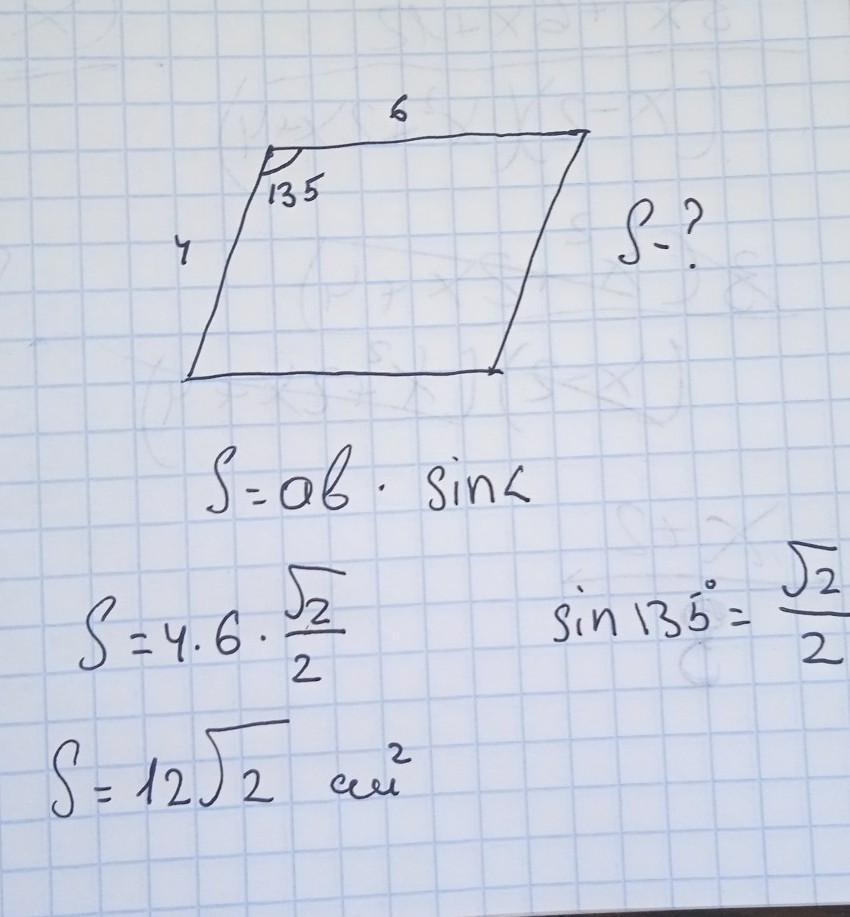 6
135
4
S-?
S=ab · sin α
S=4·6·√2/2
sin 135°=√2/2
S=12√2 см²